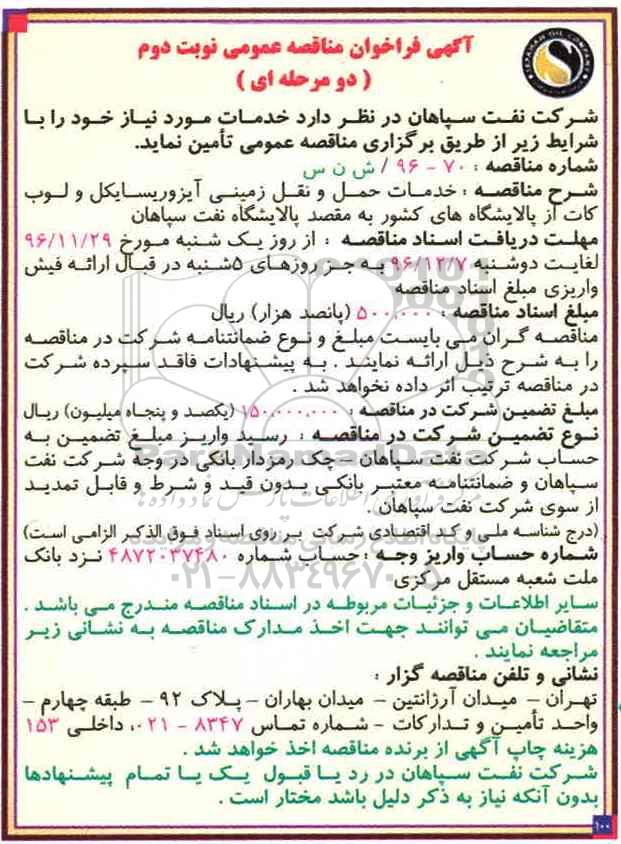 آگهی فراخوان مناقصه عمومی نوبت دوم
( دو مرحله ای )
SEPAHAN OIL COMPANY
شرکت نفت سپاهان در نظر دارد خدمات مورد نیاز خود را با
شرایط زیر از طریق برگزاری مناقصه عمومی تأمین نماید.
شماره مناقصه : ۷۰ - ۹۶ / ش ن س
شرح مناقصه : خدمات حمل و نقل زمینی آیزوریسایکل و لوب
کات از پالایشگاه های کشور به مقصد پالایشگاه نفت سپاهان
مهلت دریافت اسناد مناقصه : از روز یک شنبه مورخ ۹۶/۱۱/۲۹
لغایت دوشنبه ۹۶/۱۲/۷ به جز روزهای ۵شنبه در قبال ارائه فیش
واریزی مبلغ اسناد مناقصه
مبلغ اسناد مناقصه : ۵۰۰,۰۰۰ (پانصد هزار) ریال
مناقصه گران می بایست مبلغ و نوع ضمانتنامه شرکت در مناقصه
را به شرح ذیل ارائه نمایند . به پیشنهادات فاقد سپرده شرکت
در مناقصه ترتیب اثر داده نخواهد شد .
مبلغ تضمین شرکت در مناقصه : ۱۵۰,۰۰۰,۰۰۰ (یکصد و پنجاه میلیون) ریال
نوع تضمین شرکت در مناقصه : رسید واریز مبلغ تضمین به
حساب شرکت نفت سپاهان - چک رمزدار بانکی در وجه شرکت نفت
سپاهان و ضمانتنامه معتبر بانکی بدون قید و شرط و قابل تمدید
از سوی شرکت نفت سپاهان .
(درج شناسه ملی و کد اقتصادی شرکت بر روی اسناد فوق الذکر الزامی است)
شماره حساب واریز وجه : حساب شماره ۴۸۷۲۰۳۷۴۸۰ نزد بانک
ملت شعبه مستقل مرکزی
سایر اطلاعات و جزئیات مربوطه در اسناد مناقصه مندرج می باشد .
متقاضیان می توانند جهت اخذ مدارک مناقصه به نشانی زیر
مراجعه نمایند .
نشانی و تلفن مناقصه گزار :
تهران - میدان آرژانتین - میدان بهاران - پلاک ۹۲ - طبقه چهارم -
واحد تأمین و تدارکات - شماره تماس ۸۳۴۷ - ۰۲۱، داخلی ۱۵۳
هزینه چاپ آگهی از برنده مناقصه اخذ خواهد شد .
شرکت نفت سپاهان در رد یا قبول یک یا تمام پیشنهادها
بدون آنکه نیاز به ذکر دلیل باشد مختار است .
ParsNamadData
۰۲۱-۸۸۳۴۹۶۷۰
۱۰۰